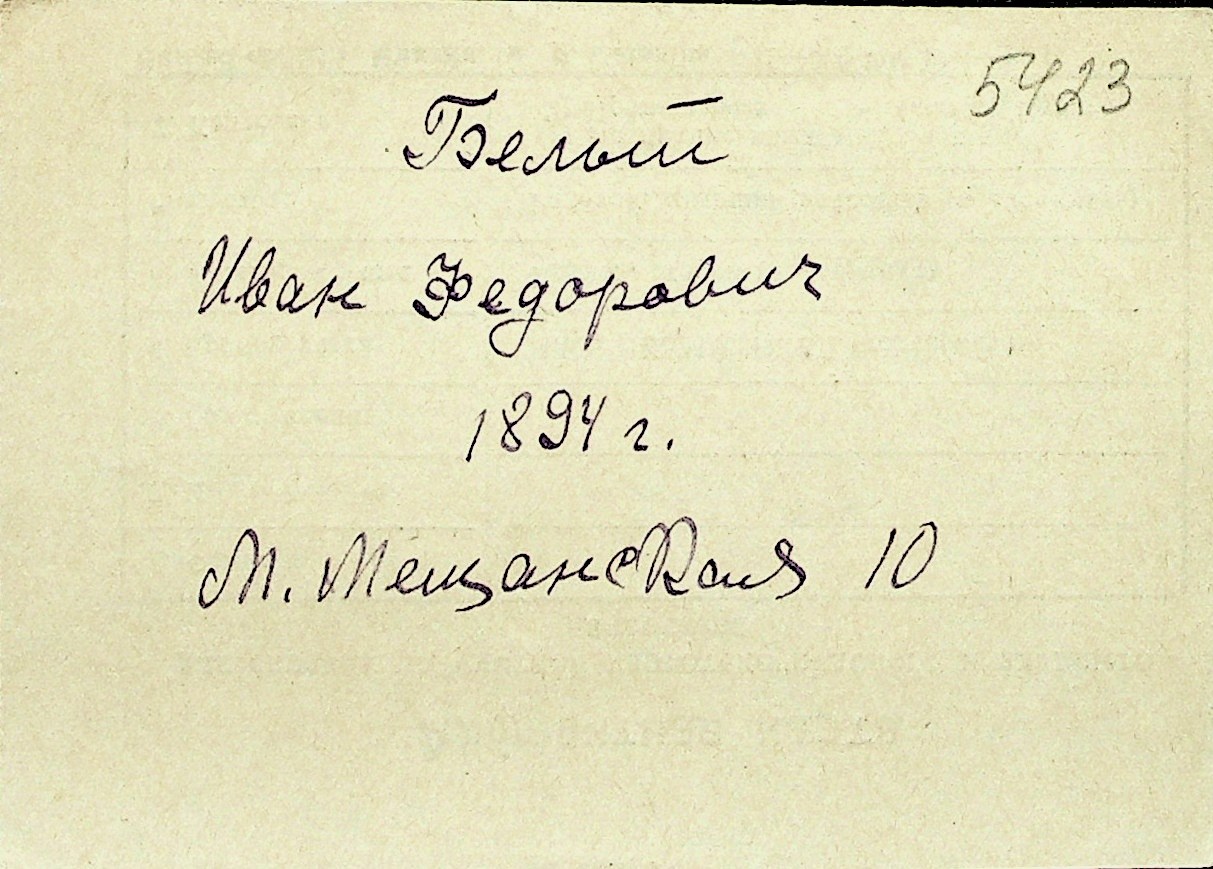 5423
Белый
Иван Федорович
1894 г.
М. Мещанская 10